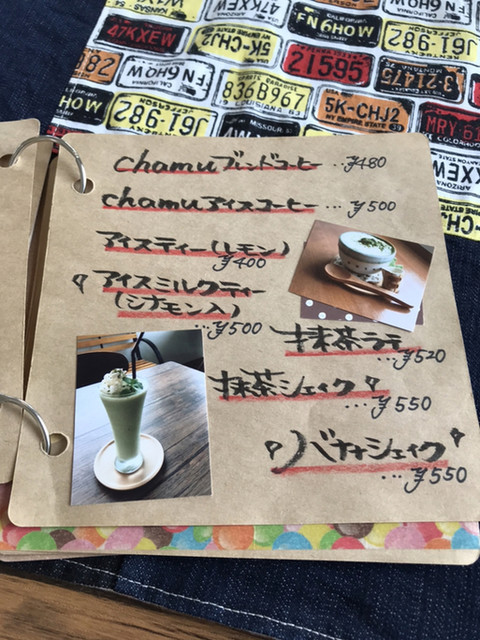 47KXEW
5K-CHJ2
FN 6HOW
J61·982
CALIFORNIA
FN 6HOW
21595
J61·982
836B967
LOUISIANA
5K-CHJ2
MY EMPIRE STATE
MISSOURI
MRY-61
KXEW
ARIZONA
chamuブレンドコーヒー …¥480
chamuアイスコーヒー …¥500
アイスティー(レモン)
¥400
アイスミルクティー
(シナモン入)
…¥500
抹茶ラテ
…¥520
抹茶シェイク
…¥550
バナナシェイク
…¥550